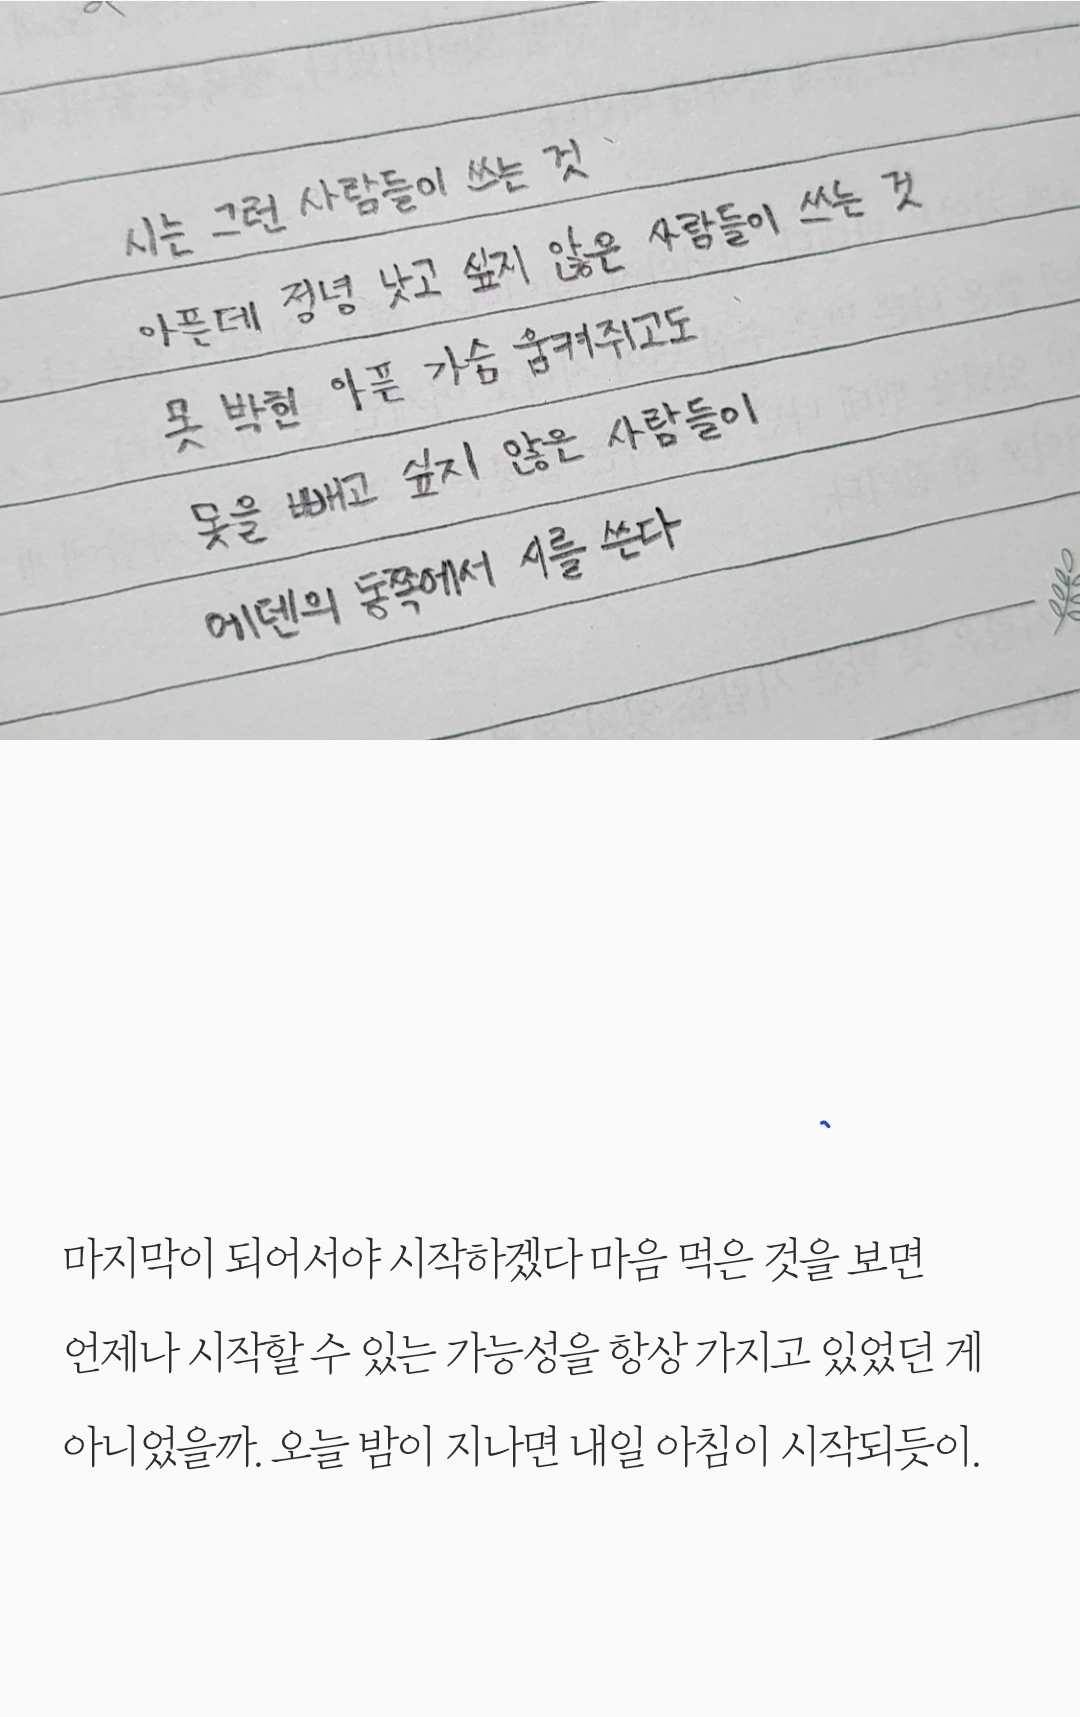 시는 그런 사람들이 쓰는 것
아픈데 정녕 낫고 싶지 않은 사람들이 쓰는 것
못 박힌 아픈 가슴 움켜쥐고도
못을 빼고 싶지 않은 사람들이
에덴의 동쪽에서 시를 쓴다
마지막이 되어서야 시작하겠다 마음 먹은 것을 보면
언제나 시작할 수 있는 가능성을 항상 가지고 있었던 게
아니었을까. 오늘 밤이 지나면 내일 아침이 시작되듯이.